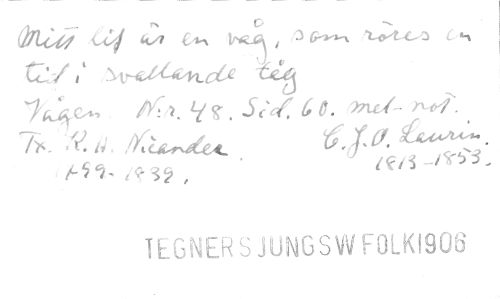 Mitt lif är en våg, som röres en
tid i svallande tåg
Vågen. N:r. 48. Sid. 60. mel-not.
Tx. K. A. Nicander. C. J. O. Laurin.
1799-1839. 1813-1853.
TEGNERSJUNGSWFOLK1906